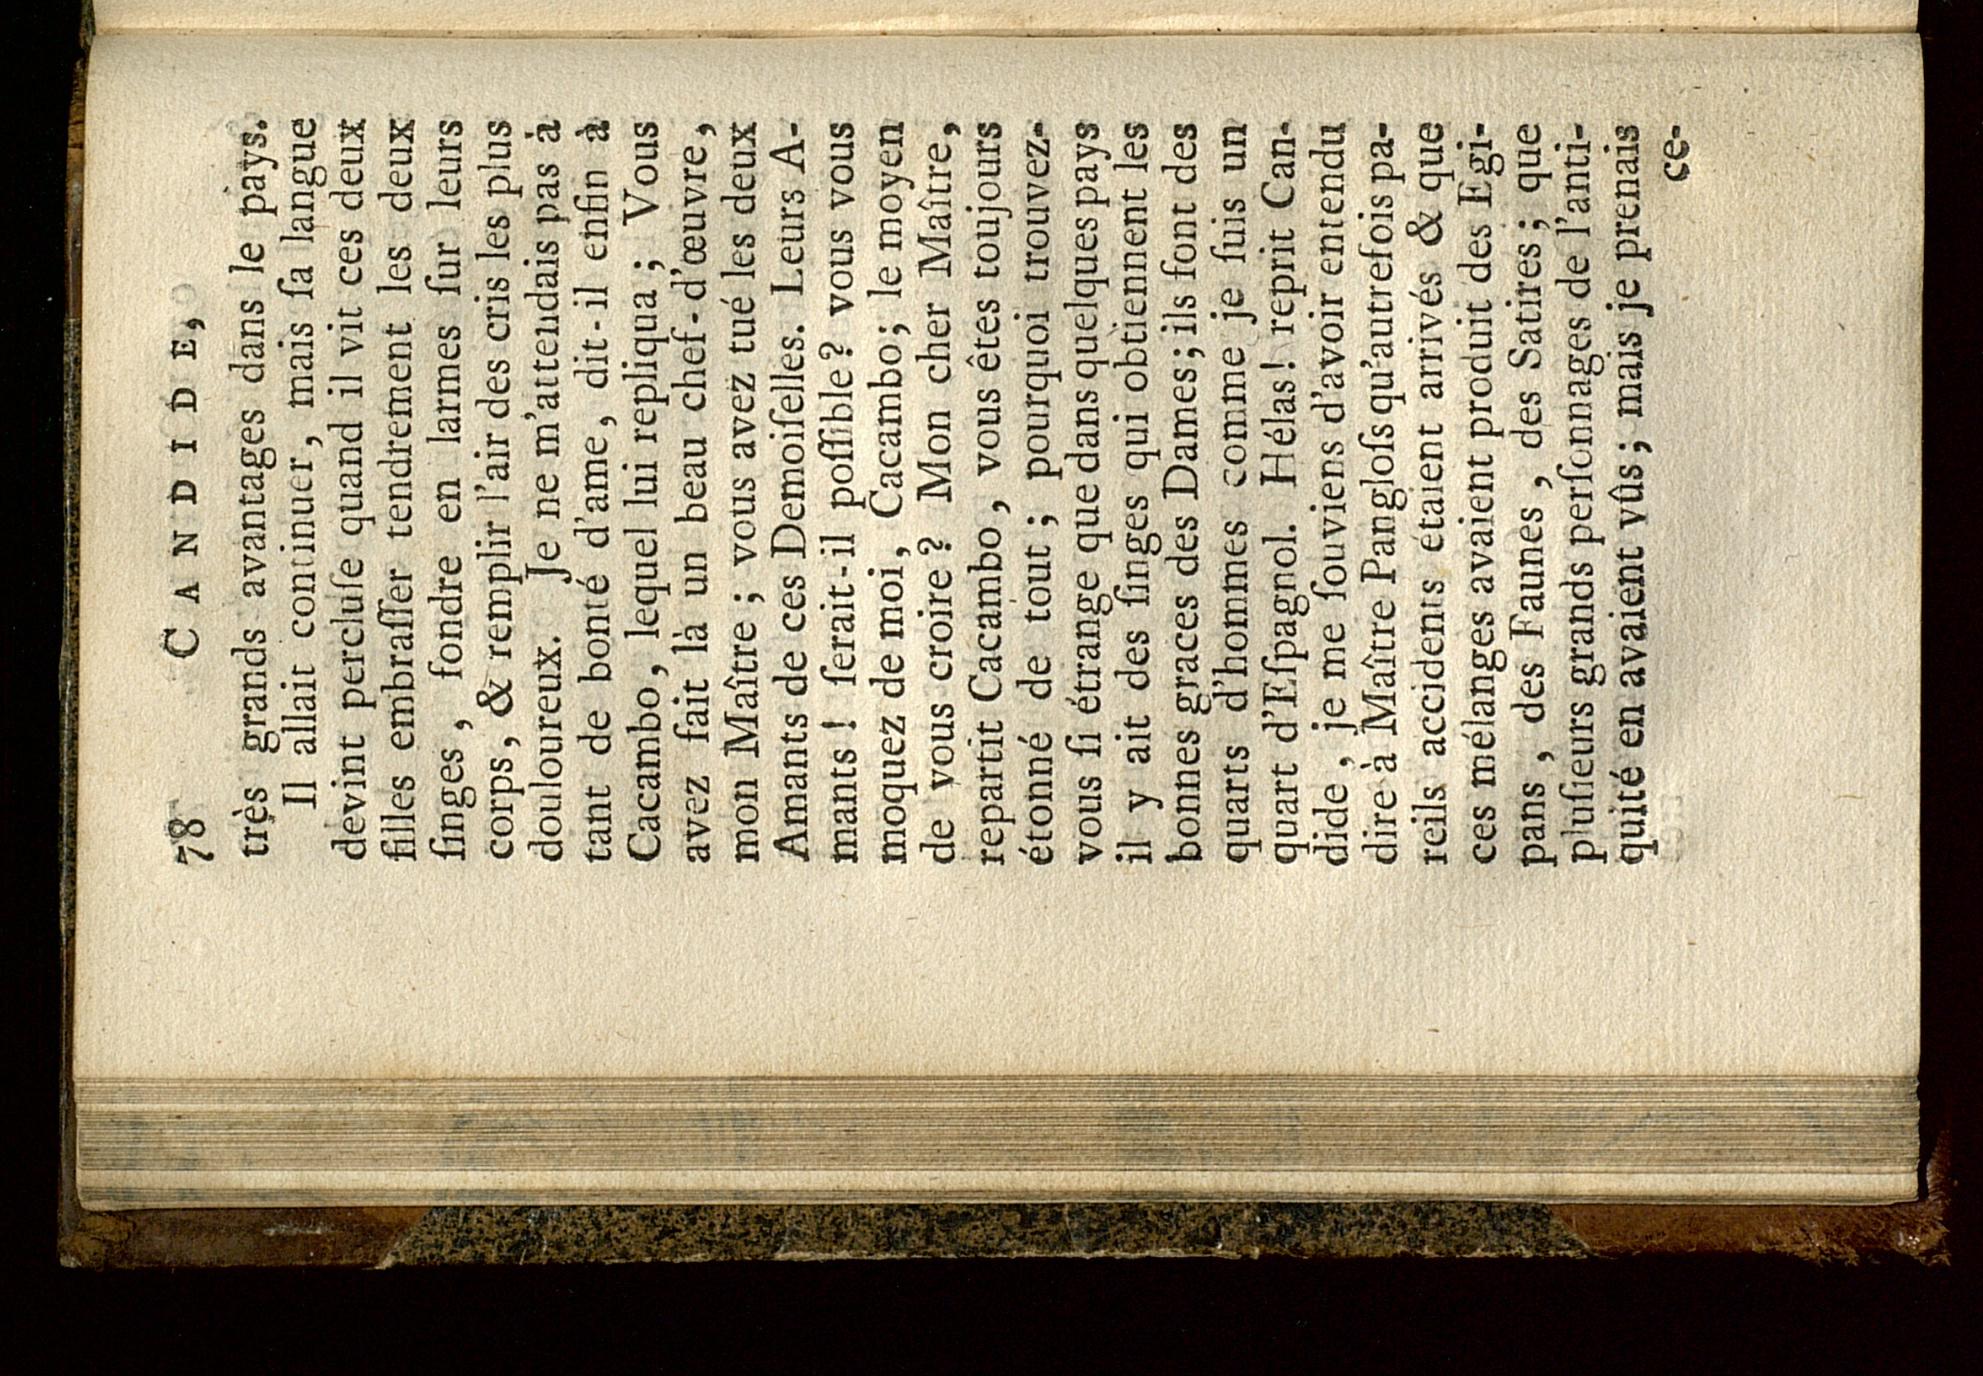 78 CANDIDE,
très grands avantages dans le pays.
Il allait continuer, mais ſa langue
devint percluſe quand il vit ces deux
filles embraſſer tendrement les deux
ſinges, fondre en larmes ſur leurs
corps, & remplir l'air des cris les plus
douloureux. Je ne m'attendais pas à
tant de bonté d'ame, dit-il enfin à
Cacambo, lequel lui repliqua; Vous
avez fait là un beau chef-d'œuvre,
mon Maître; vous avez tué les deux
Amants de ces Demoiſelles. Leurs A-
mants! ſerait-il poſſible? vous vous
moquez de moi, Cacambo; le moyen
de vous croire? Mon cher Maître,
repartit Cacambo, vous êtes toujours
étonné de tout; pourquoi trouvez-
vous ſi étrange que dans quelques pays
il y ait des ſinges qui obtiennent les
bonnes graces des Dames; ils ſont des
quarts d'hommes comme je ſuis un
quart d'Eſpagnol. Hélas! reprit Can-
dide, je me ſouviens d'avoir entendu
dire à Maître Pangloſs qu'autrefois pa-
reils accidents étaient arrivés & que
ces mélanges avaient produit des Egi-
pans, des Faunes, des Satires; que
pluſieurs grands perſonnages de l'anti-
quité en avaient vûs; mais je prenais
ce-